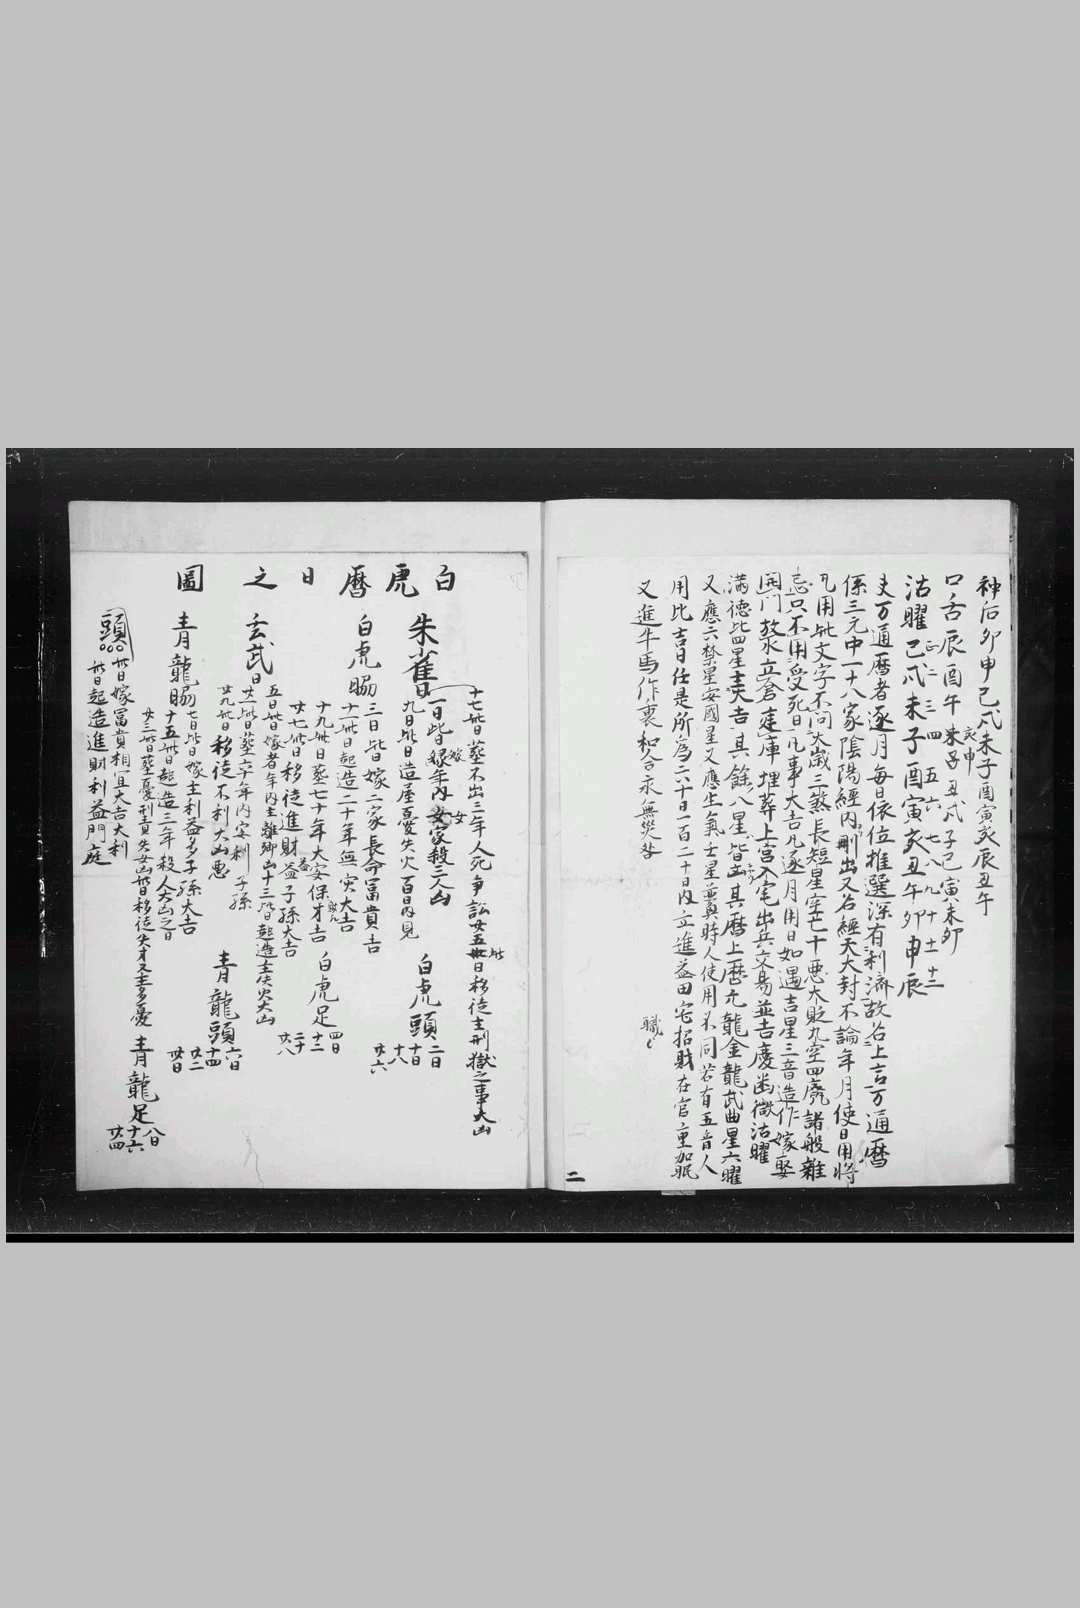 神后卯申己戌未子酉寅亥辰丑午
口舌辰酉午亥申未子丑戌子己寅未卯
正二三四五六七八九十十一十二
沽曜己戌未子酉寅亥丑午卯申辰
夫万通曆者逐月每日依位推選深有利濟故名上吉万通曆
係三元中一十八家陰陽經內剛出又名經天大封不論年月使日用將
凡用此文字不問太歲三煞長短星穼亡十悪大敗九空四廢諸般雜
忌只不用受死日凡事大吉凡逐月用日如遇吉星三音造作嫁娶
開門放水立倉建庫埋葬上宮入宅出兵交易並吉慶幽微沽曜
滿德此四星主大吉其餘八星皆凶其曆上曆元龍金龍武曲星六曜
又應六禁星安國星又應生氣壬星並異時人使用不同若有五音人
用比吉日任是所為六十日一百二十日內立進益田宅招財在官重加职
又進牛馬作裏和合永無災咎
職
二
白虎曆日之圖
十七此日葬不出三年人死爭訟女五此日移徒主刑獄之事大凶
朱雀日一日此日嫁年內女家殺三人凶
九日此日造屋憂失火百日內見
白虎頭二日十日十八廿六
白虎脇三日此日嫁二家長命冨貴吉
十一此日起造二十年無灾大吉
十九此日葬七十年大安保才吉
廿七此日移徒進財益子孫大吉
白虎足四日十二二十廿八
玄武日五日此日嫁者年內主離鄉凶十三此日起造主失火大凶
廿一此日葬六十年內安利子孫
廿九此日移徒不利大凶悪
青龍頭六日十四廿二卅日
青龍脇七日此日嫁主利益多子孫大吉
十五此日起造三年殺人大凶之日
廿三此日葬憂刑責失女凶此日移徒失才又主多憂
青龍足八日十六廿四
頭此日嫁冨貴相宜大吉大利
此日起造進財利益門庭